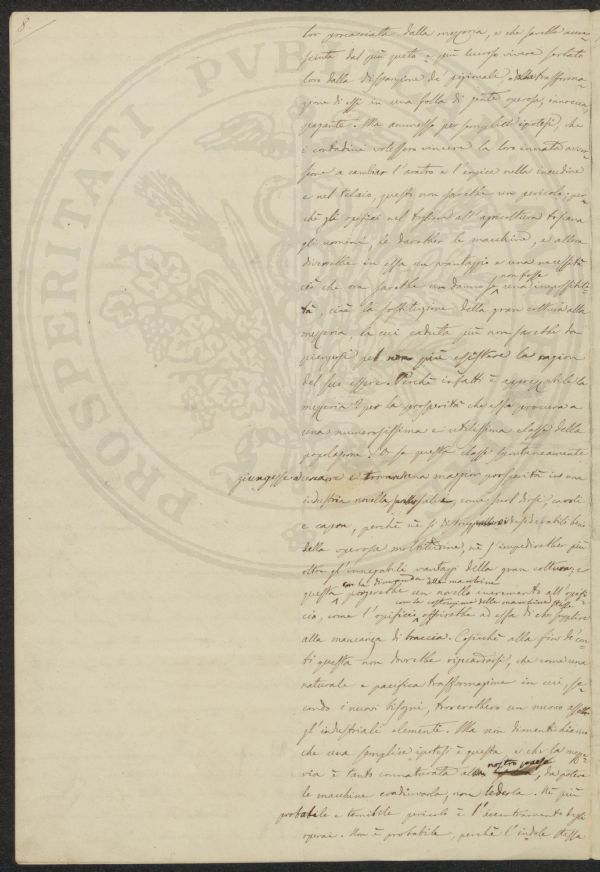 8.
lor procacciata dalla mezzeria, e che sarebbe accre-
sciuta dal più queto e più lucroso vivere serbato
loro dalla disparizione de' pigionali e dalla trasforma-
zione di essi in una folla di gente operosa, invece
pagante. Ma ammesso per semplice ipotesi, che
i contadini volessero vincere la loro innata avver-
sione a cambiar l'aratro e l'erpice nella incudine
e nel telaio, questo non sarebbe un pericolo; per-
chè gli opifici nel togliere all'agricoltura toscana
gli uomini, le darebber le macchine, e allora
diverrebbe in essa un vantaggio e una necessità
ciò che ora sarebbe un danno se non fosse una impossibili-
tà, cioè la sostituzione della gran coltura alla
mezzeria, la cui caduta più non sarebbe da
piangersi pel non più esistere la ragione
del suo essere. Perchè infatti è apprezzabile la
mezzeria? per la prosperità che essa procura a
una numerosissima e utilissima classe della
popolazione. Or se questa classe spontaneamente
giungesse a cercare e trovare una maggior prosperità in una
industria novella salve, come suol dirsi, cavoli
e capra, perchè nè si distruggerebbero i considerabili beni
della operosa moltitudine, nè s'impedirebber più
oltre gl'innegabili vantaggi della gran coltura; e
questa con la dimanda delle macchine porgerebbe un novello incremento all'opifi-
cio, come l'opificio con la costruzione delle macchine stesse offrirebbe ad essa di che supplire
alla mancanza di braccia. Cosicchè alla fine de' con-
ti questa non dovrebbe riguardarsi, che come una
naturale e pacifica trasformazione in cui, se-
condo i nuovi bisogni, troverebbero un nuovo assetto
gl'industriali elementi. Ma non dimentichiamo
che una semplice ipotesi è questa, e che la mezze-
ria è tanto connaturata al nostro paese, da potere
le macchine coadiuvarla, non lederla. Nè più
probabile e temibile pericolo è l'accentramento degli
operai. Non è probabile, perchè l'indole stessa
PROSPERITATI PVBL